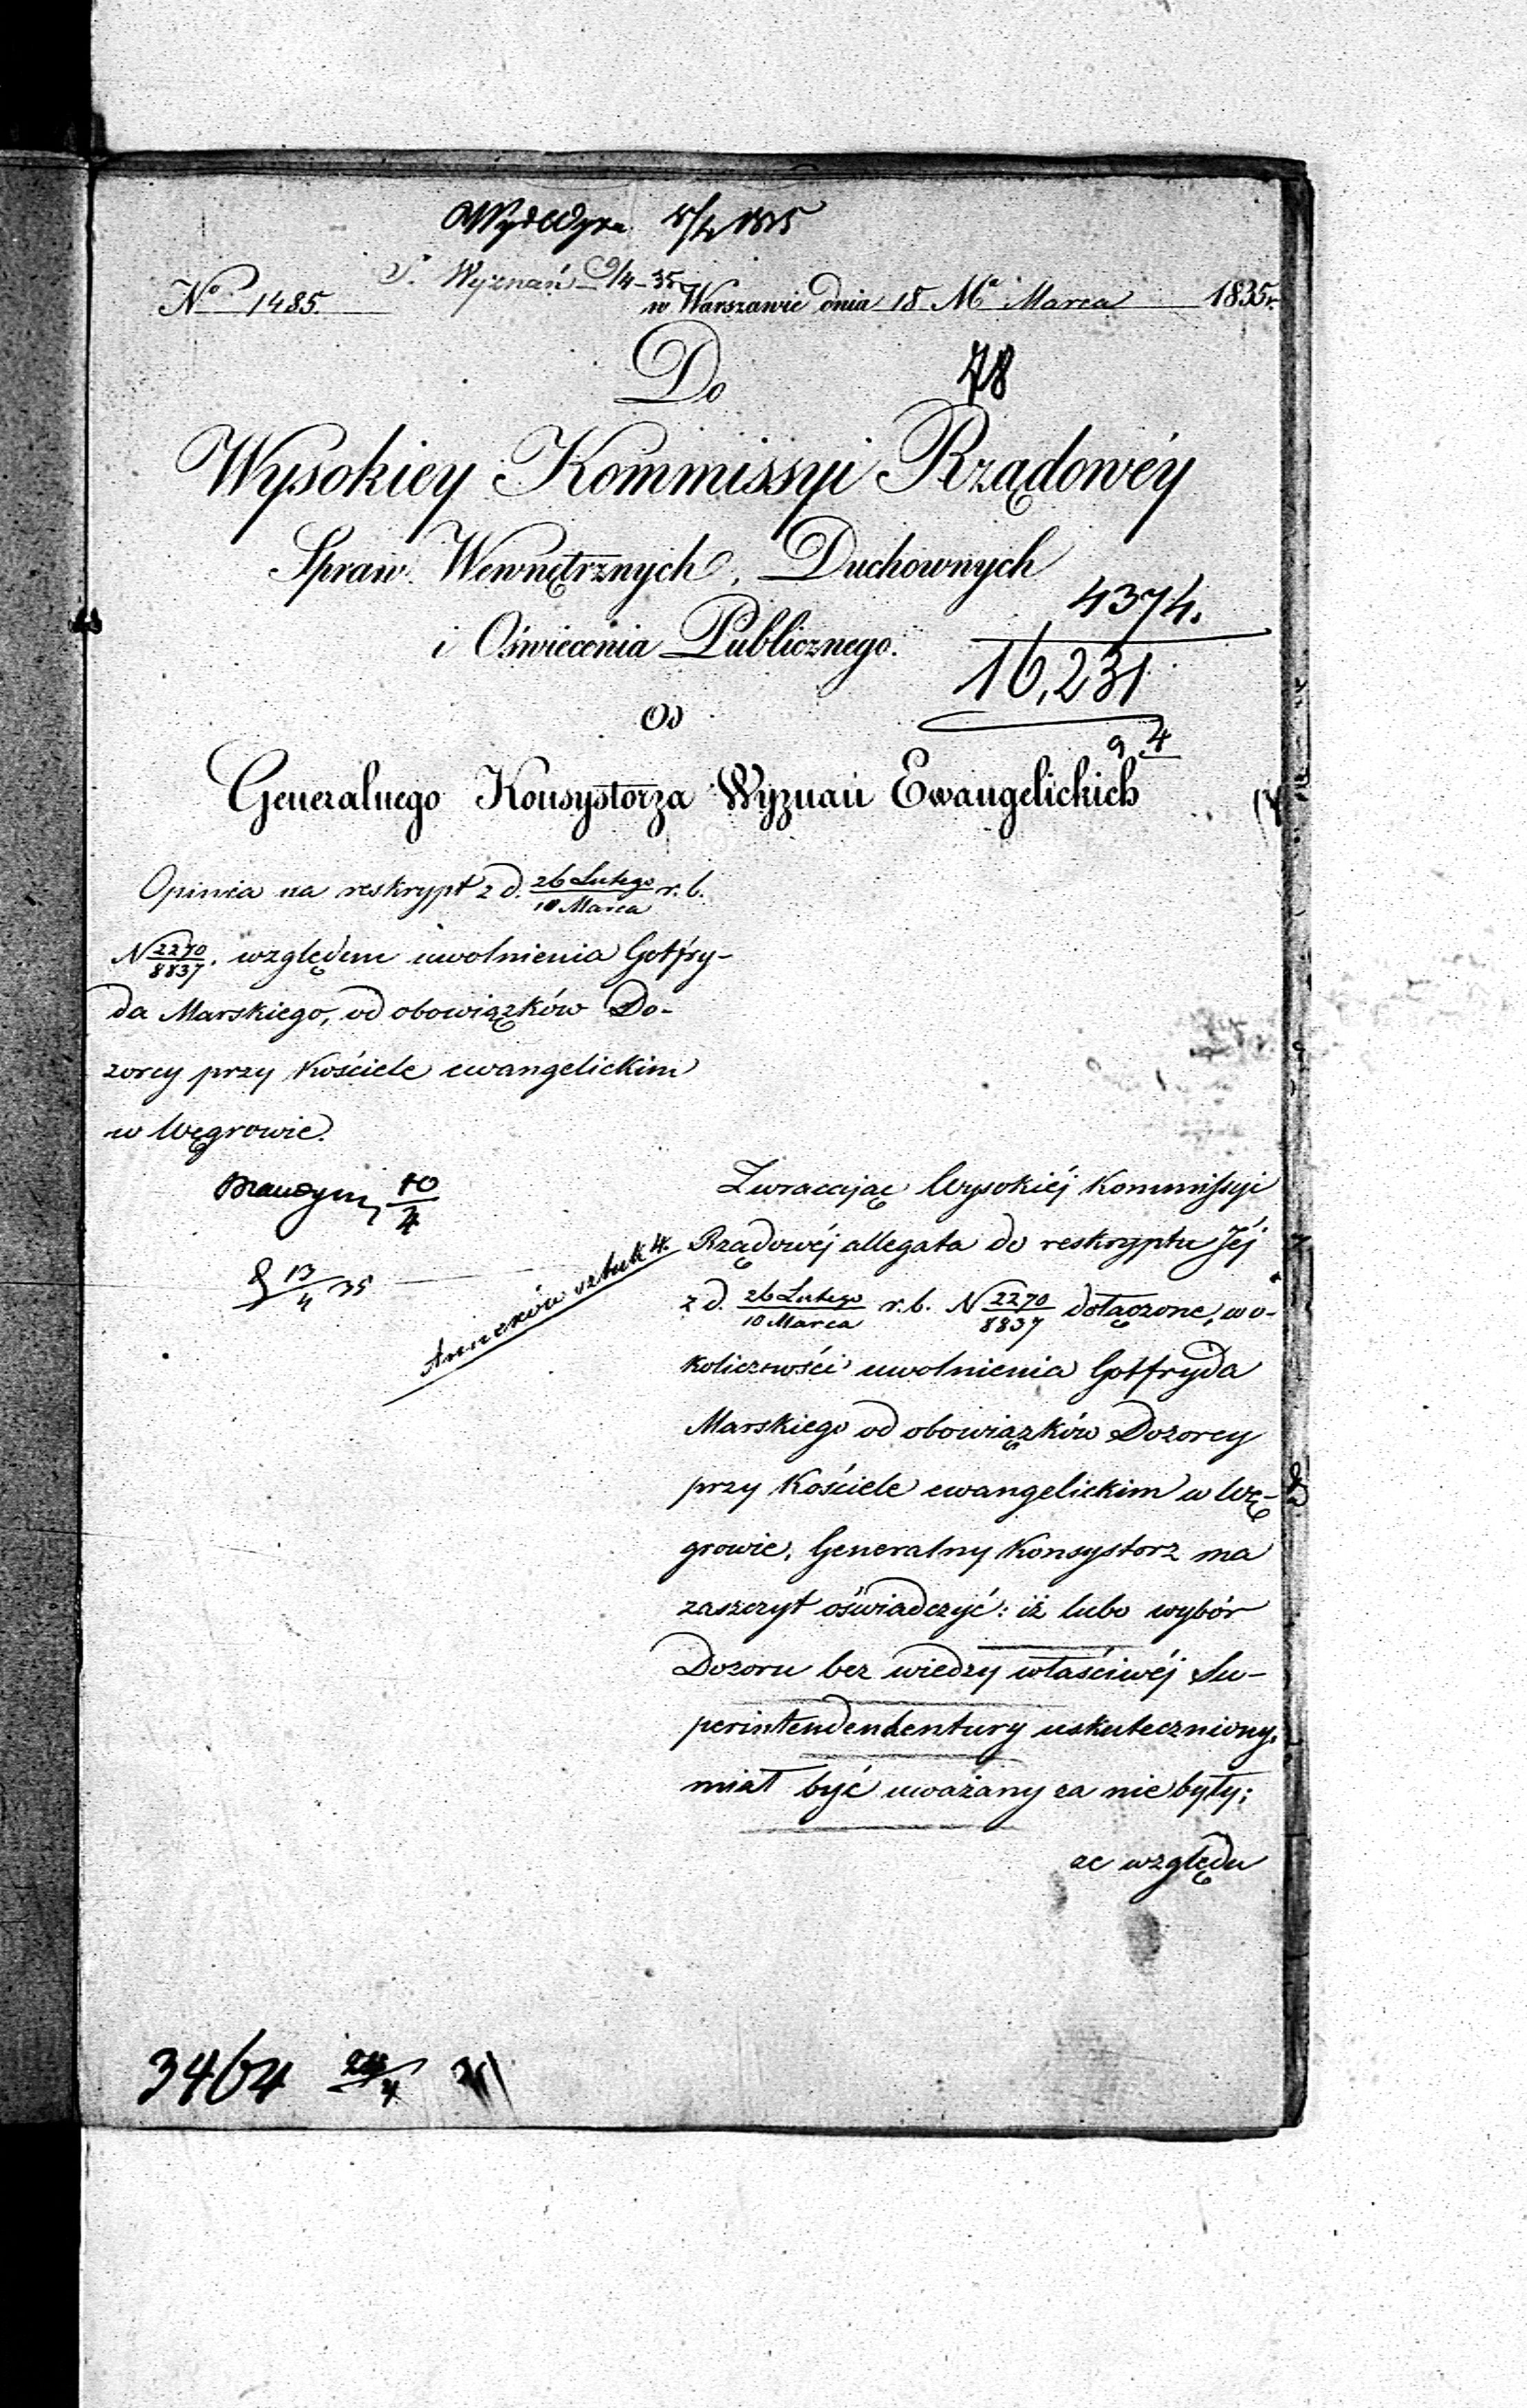 S. Wyznań 9/4 35
No 1485. w Warszawie dnia 18 Ma Marca 1835r.
Do
78
Wysokiey Kommissyi Rządowéy
Spraw Wewnętrznych, Duchownych
4374.
i Oświecenia Publicznego.
16,231
9 4
Od
Generalnego Konsystorza Wyznań Ewangelickich
Opinia na reskrypt z d. 26 Lutego/10 Marca r. b.
N 2270/8837. względem uwolnienia Gotfry-
da Marskiego, od obowiązków Do-
zorcy przy Kościele ewangelickim
w Węgrowie.
10/4
13/4 35
Annexów sztuk 4.
Zwracając Wysokiéj Kommissyi
Rządowéj allegata do reskryptu Jéj
z d. 26 Lutego/10 Marca r. b. N 2270/8837 dołączone, w o-
koliczności uwolnienia Gotfryda
Marskiego od obowiązków Dozorcy
przy Kościele ewangelickim w Wę-
growie, Generalny Konsystorz ma
zaszczyt oświadczyć: iż lubo wybór
Dozoru bez wiedzy właściwéj Su-
perintendendentury uskuteczniony,
miał być uważany za nie były;
ze względu
3464 24/4